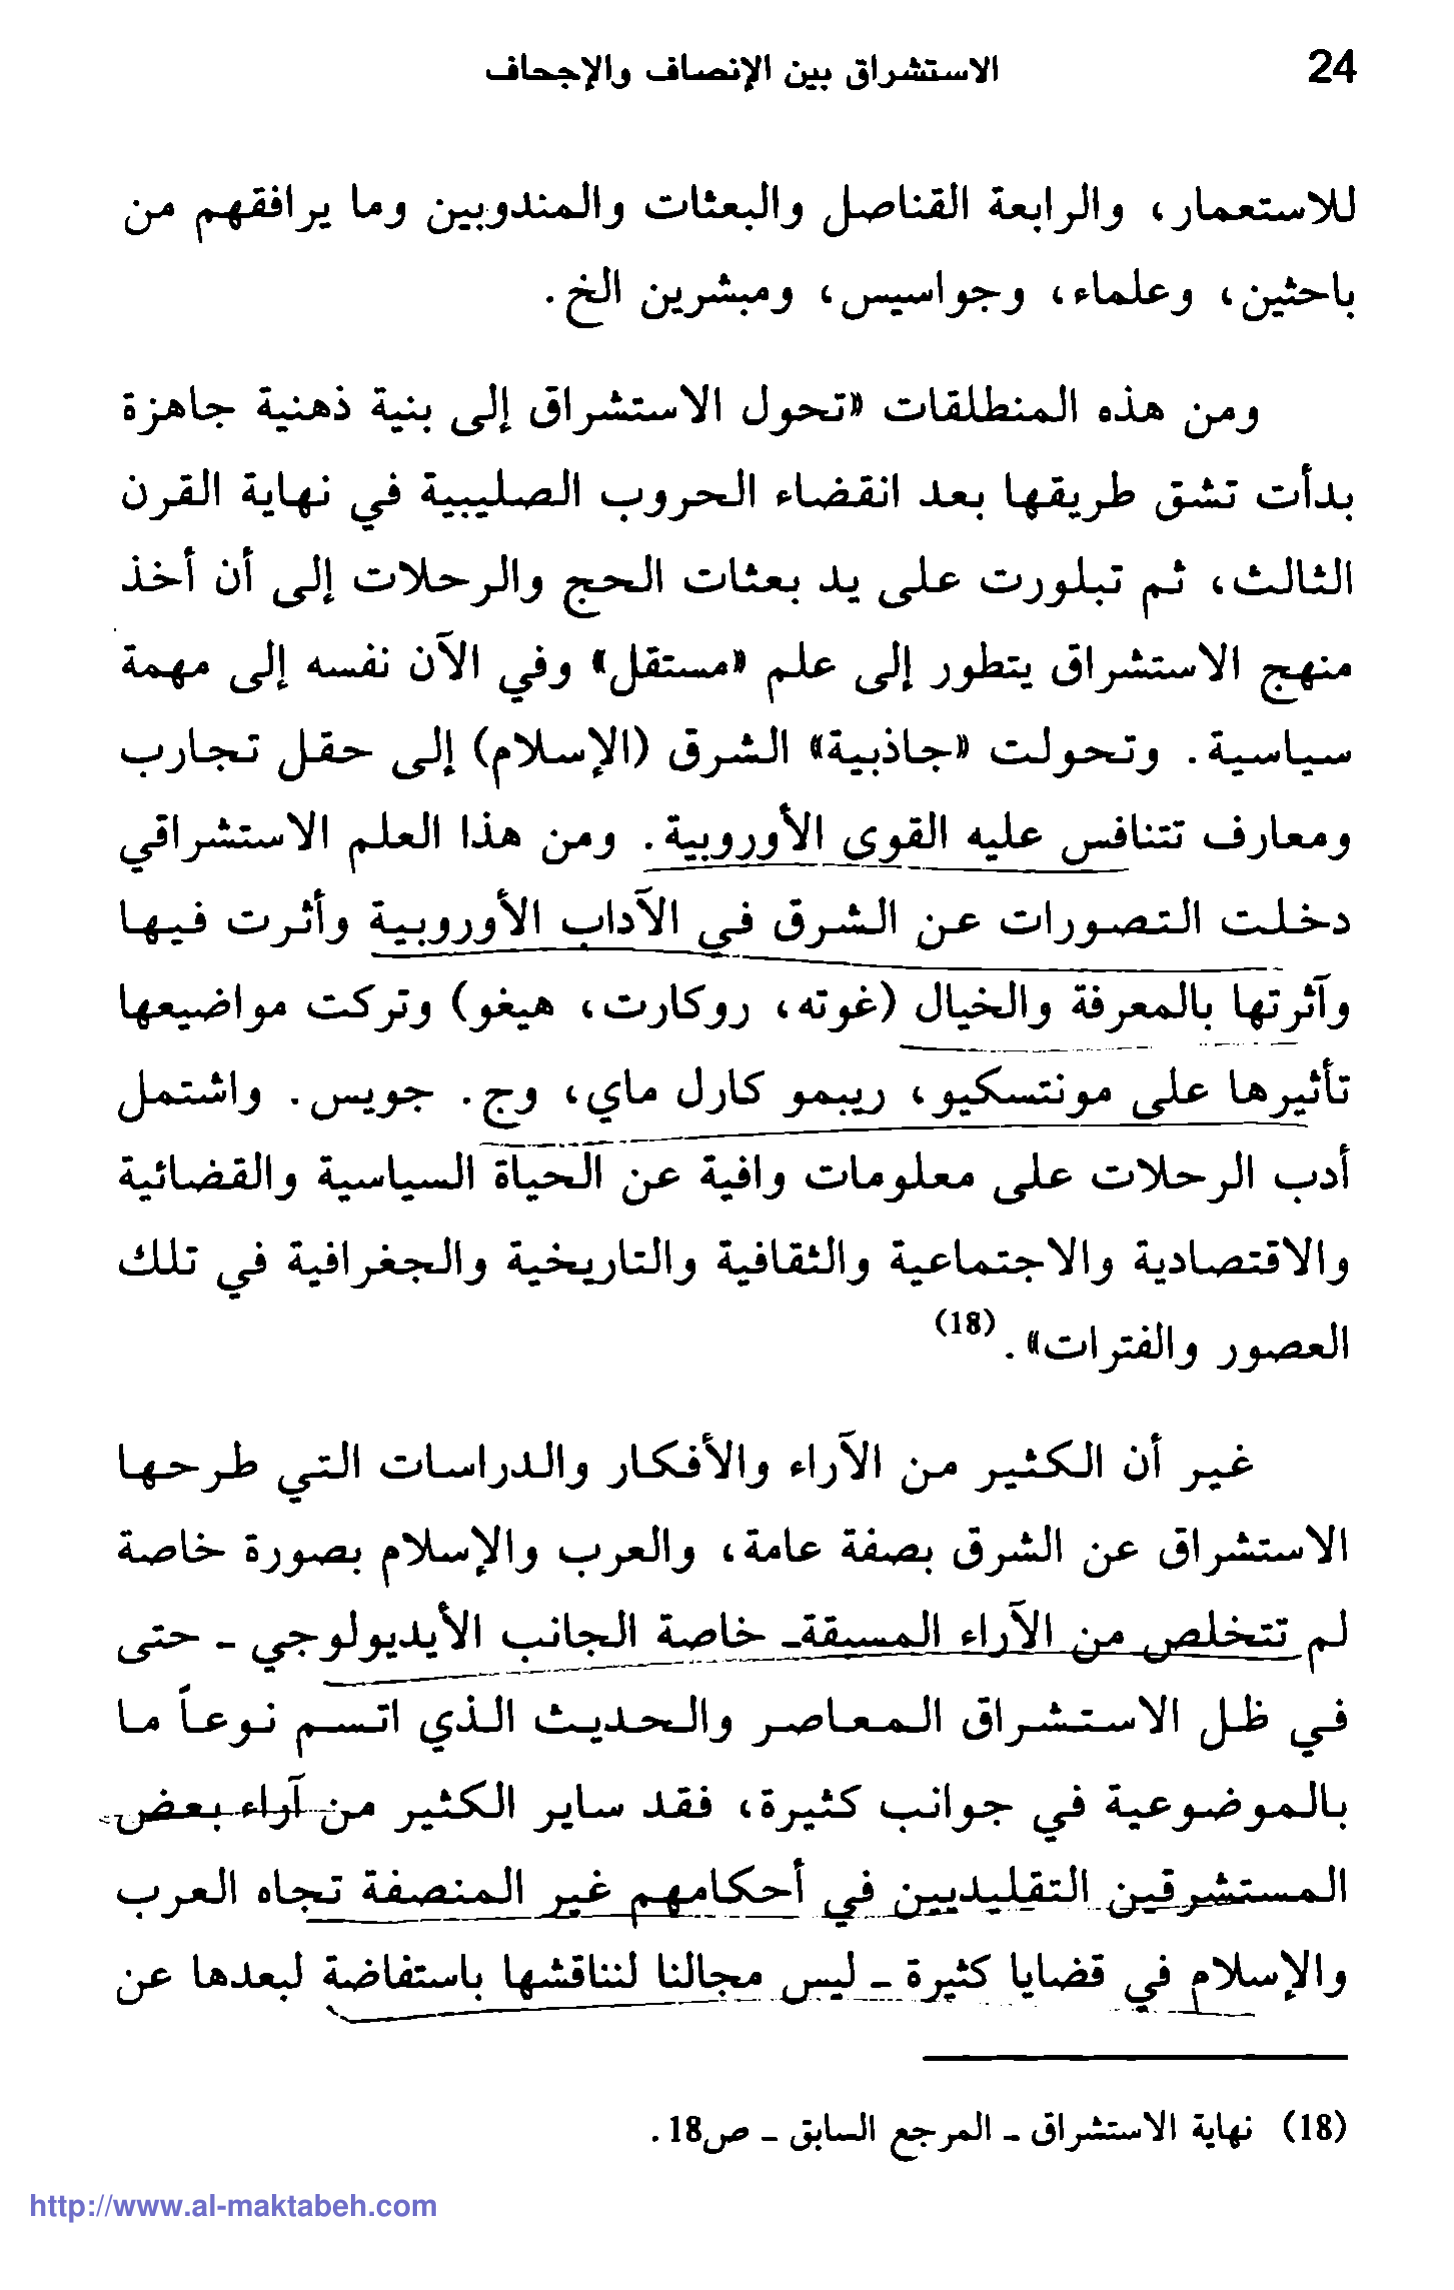 24
الاستشراق بين الإنصاف والإجحاف
للاستعمار، والرابعة القناصل والبعثات والمندوبين وما يرافقهم من
باحثين، وعلماء، وجواسيس، ومبشرين الخ.
ومن هذه المنطلقات «تحول الاستشراق إلى بنية ذهنية جاهزة
بدأت تشق طريقها بعد انقضاء الحروب الصليبية في نهاية القرن
الثالث، ثم تبلورت على يد بعثات الحج والرحلات إلى أن أخذ
منهج الاستشراق يتطور إلى علم «مستقل» وفي الآن نفسه إلى مهمة
سياسية. وتحولت «جاذبية» الشرق (الإسلام) إلى حقل تجارب
ومعارف تتنافس عليه القوى الأوروبية. ومن هذا العلم الاستشراقي
دخلت التصورات عن الشرق في الآداب الأوروبية وأثرت فيها
وآثرتها بالمعرفة والخيال (غوته، روكارت، هيغو) وتركت مواضيعها
تأثيرها على مونتسكيو، ريبمو كارل ماي، وج. جويس. واشتمل
أدب الرحلات على معلومات وافية عن الحياة السياسية والقضائية
والاقتصادية والاجتماعية والثقافية والتاريخية والجغرافية في تلك
العصور والفترات».(18)
غير أن الكثير من الآراء والأفكار والدراسات التي طرحها
الاستشراق عن الشرق بصفة عامة، والعرب والإسلام بصورة خاصة
لم تتخلص من الآراء المسبقة- خاصة الجانب الأيديولوجي - حتى
في ظل الاستشراق المعاصر والحديث الذي اتسم نوعاً ما
بالموضوعية في جوانب كثيرة، فقد ساير الكثير من آراء بعض
المستشرقين التقليديين في أحكامهم غير المنصفة تجاه العرب
والإسلام في قضايا كثيرة - ليس مجالنا لنناقشها باستفاضة لبعدها عن
(18) نهاية الاستشراق - المرجع السابق - ص18.
http://www.al-maktabeh.com